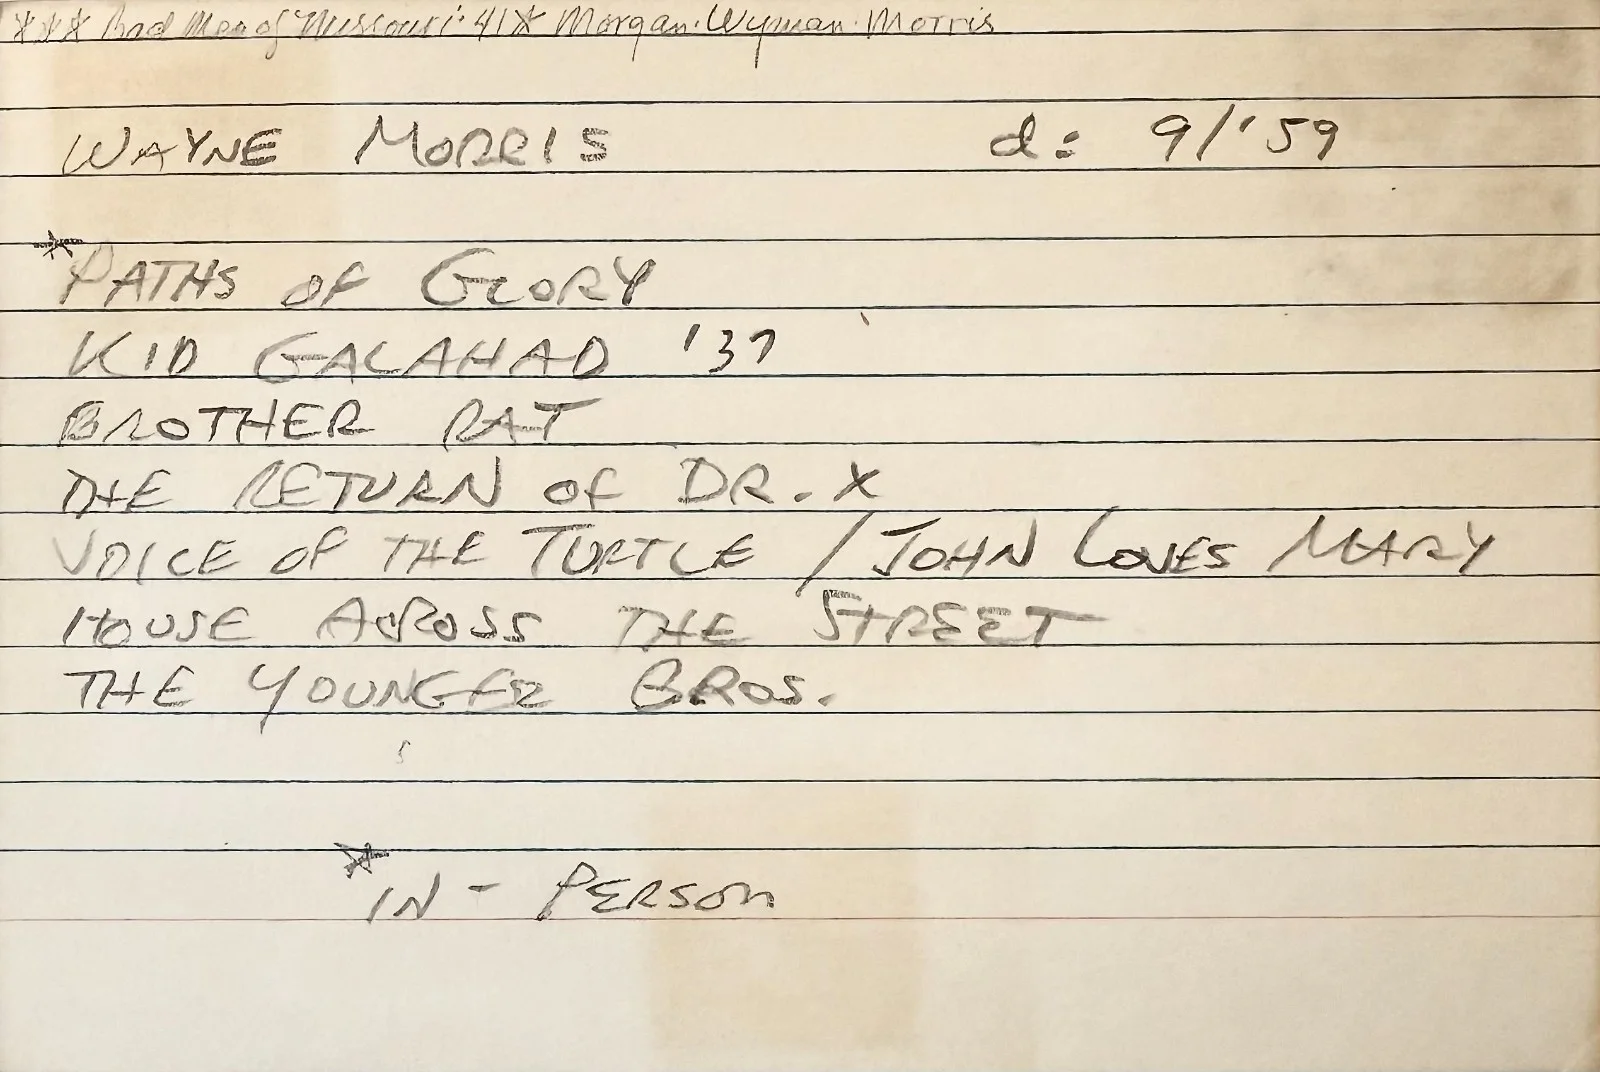 *** Bad Men of Missouri '41 * Morgan · Wyman · Morris
WAYNE MORRIS d: 9/'59
*PATHS OF GLORY
KID GALAHAD '37
BROTHER RAT
THE RETURN OF DR. X
VOICE OF THE TURTLE / JOHN LOVES MARY
HOUSE ACROSS THE STREET
THE YOUNGER BROS.
*IN - PERSON